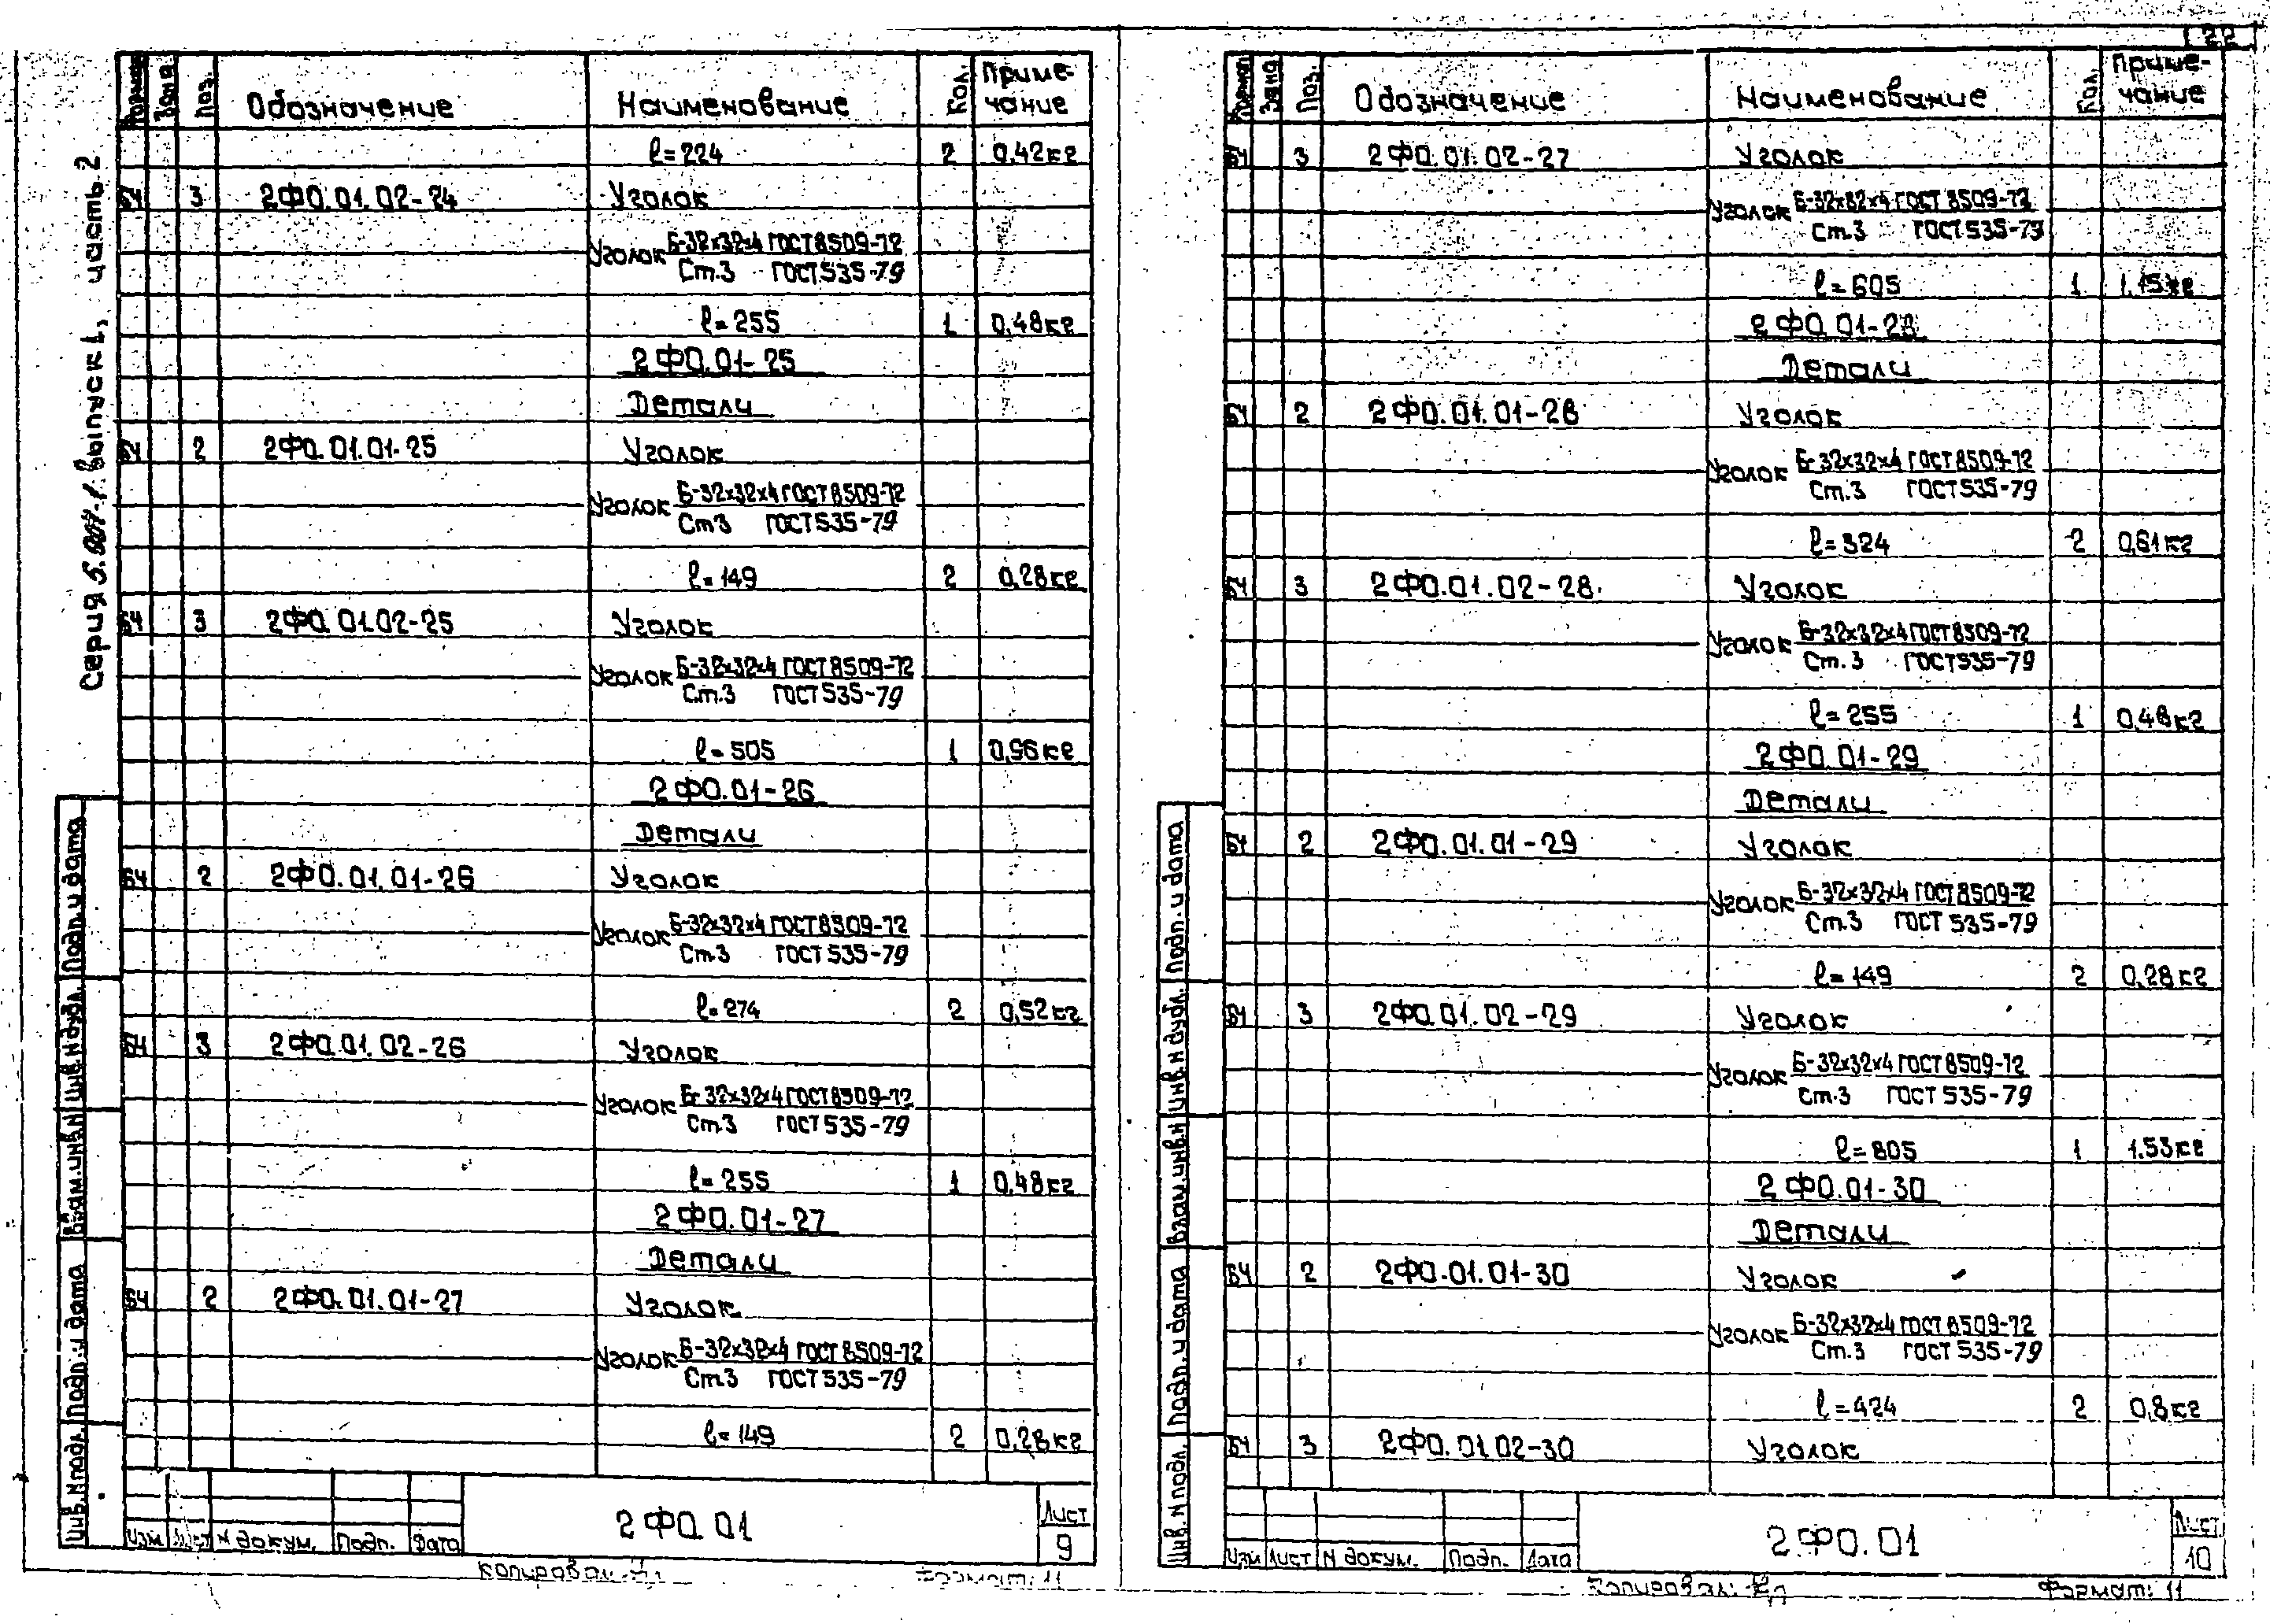 22
Серия 5.901-1. выпуск 1, часть 2
Формат Зона Поз. Обозначение Наименование Кол. Приме-
чание
ℓ=224 2 0,42кг
БЧ 3 2ФО.01.02-24 Уголок
Уголок Б-32х32х4 ГОСТ 8509-72
Ст.3 ГОСТ 535-79
ℓ=255 1 0,48кг
2ФО.01-25
Детали
БЧ 2 2ФО.01.01-25 Уголок
Уголок Б-32х32х4 ГОСТ 8509-72
Ст3 ГОСТ 535-79
ℓ=149 2 0,28кг
БЧ 3 2ФО.01.02-25 Уголок
Уголок Б-32х32х4 ГОСТ 8509-72
Ст.3 ГОСТ 535-79
ℓ=505 1 0,96кг
2ФО.01-26
Детали
БЧ 2 2ФО.01.01-26 Уголок
Уголок Б-32х32х4 ГОСТ 8509-72
Ст.3 ГОСТ 535-79
ℓ=274 2 0,52кг
БЧ 3 2ФО.01.02-26 Уголок
Уголок Б-32х32х4 ГОСТ 8509-72
Ст.3 ГОСТ 535-79
ℓ=255 1 0,48кг
2ФО.01-27
Детали
БЧ 2 2ФО.01.01-27 Уголок
Уголок Б-32х32х4 ГОСТ 8509-72
Ст.3 ГОСТ 535-79
ℓ=149 2 0,28кг
Инв.N подл. Подп. и дата Взам.инв.N Инв.N дубл. Подп. и дата
Изм Лист N докум. Подп. Дата
2ФО.01
Лист
9
Копировал:
Формат: 11
Формат Зона Поз. Обозначение Наименование Кол. Приме-
чание
БЧ 3 2ФО.01.02-27 Уголок
Уголок Б-32х32х4 ГОСТ 8509-72
Ст.3 ГОСТ 535-79
ℓ=605 1 1,15кг
2ФО.01-28
Детали
БЧ 2 2ФО.01.01-28 Уголок
Уголок Б-32х32х4 ГОСТ 8509-72
Ст.3 ГОСТ 535-79
ℓ=324 2 0,61кг
БЧ 3 2ФО.01.02-28 Уголок
Уголок Б-32х32х4 ГОСТ 8509-72
Ст.3 ГОСТ 535-79
ℓ=255 1 0,48кг
2ФО.01-29
Детали
БЧ 2 2ФО.01.01-29 Уголок
Уголок Б-32х32х4 ГОСТ 8509-72
Ст.3 ГОСТ 535-79
ℓ=149 2 0,28кг
БЧ 3 2ФО.01.02-29 Уголок
Уголок Б-32х32х4 ГОСТ 8509-72
Ст.3 ГОСТ 535-79
ℓ=805 1 1.53кг
2ФО.01-30
Детали
БЧ 2 2ФО.01.01-30 Уголок
Уголок Б-32х32х4 ГОСТ 8509-72
Ст.3 ГОСТ 535-79
ℓ=424 2 0,8кг
БЧ 3 2ФО.01.02-30 Уголок
Инв.N подл. Подп. и дата Взам.инв.N Инв.N дубл. Подп. и дата
Изм Лист N докум. Подп. Дата
2ФО.01
Лист
10
Копировал:
Формат: 11